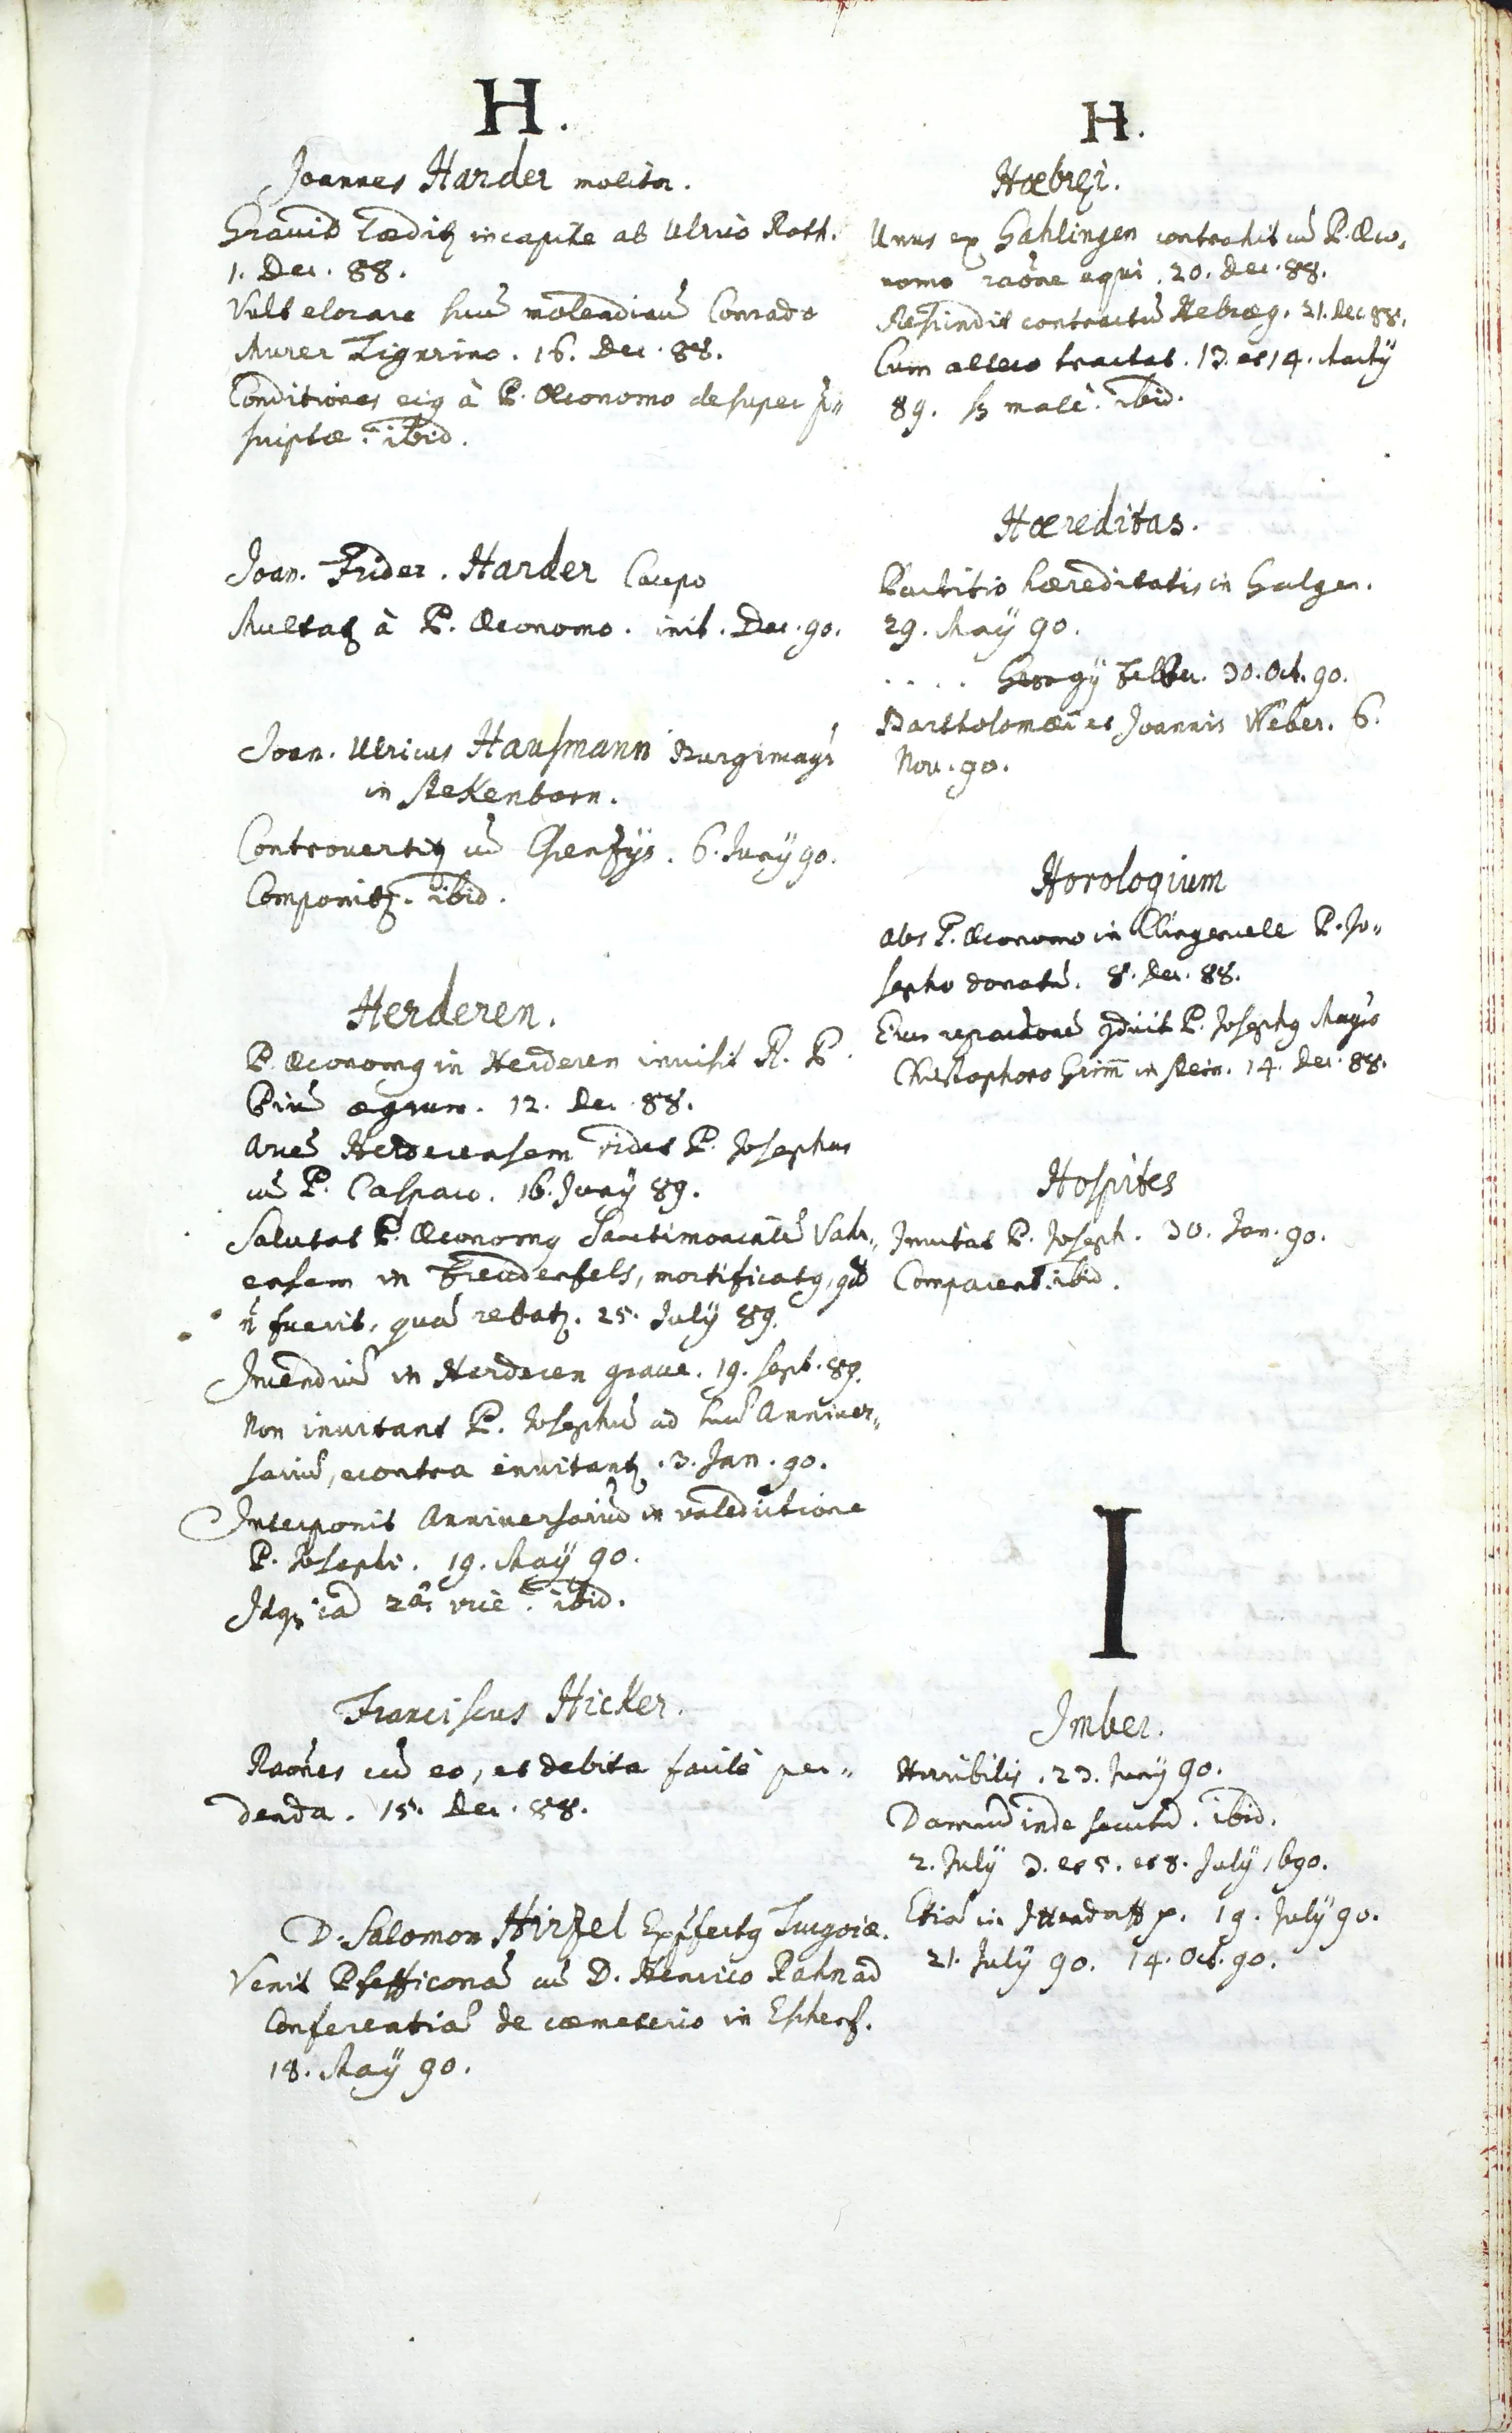 H.
Joannes Harder molitor.
Graviter læditʒ in capite ab Ulrico Roth.
1. Dec. 88.
Vult elocare suũ molendinũ Conrado
Murer Tigurino. 16. Dec. 88.
Conditiones eiq à P. Œconomo desuper
scriptæ. ibid.
Joan. Frider. Harder Caupo
Multatʒ à P. Œconomo. init. Dec. 90.
Joan. Ulricus Hausmann Burgimagr
in Stekenborn.
Controvertitʒ cũ 6. Juny 90.
Componitʒ. ibid.
Herderen.
P. Œconomq in Herderen invisit R. P.
Piũ ægrum. 12. Dec. 88.
Arcẽ Herderensem videt P. Josephus
cũ P. Casparo. 16. Juny 89.
Salutat P. Œconomq Sanctimonialẽ Vahr„
ensem in Freudenfels, mortificatq, qđ
ñ fuerit, quã rebatʒ. 25. July 89.
Incendiũ in Herderen grave. 19. Sept. 89.
Non invitant P. Josephũ ad suũ Anniver„
sariũ, econtra invitantʒ. 3. Jan. 90.
Interponit Anniversariũ in valedictione
P. Josephi. 19. May 90.
Idqʒ iã 2ã vice. ibid.
Franciscus Hicker.
Raões cũ eo, et debita facilè per„
denda. 15. Dec. 88.
D. Salomon Hirzel Expfectq Turgoiæ.
Venit Pfefficonã cũ D. Henrico Rahn ad
Conferentiã de cœmeterio in Eschenʒ.
18. May 90.
H.
Hæbrei.
Unus ex Gahlingen contrahit cũ P. Œco„
nomo raõne equi. 20. Dec. 88.
Rescindit contractũ Hebræq. 21. Dec 88.
Cum altero tractat. 13. et 14. Marty
89. sʒ malè. ibid.
Hæreditas.
Partitio hæreditatis in
29. May 90.
.... Georgÿ 30. Oct. 90.
Bartholomæi et Joannis Weber. 6.
Nov. 90.
Horologium
abs P. Œconomo in Klingenzell P. Jo„
sepho donatũ. 8. Dec. 88.
Eius reparãonẽ P. Josephq Magro
Christophoro Grim̄ in Stein. 14. Dec. 88.
Hospites
Invitat P. Joseph. 30. Jan. 90.
Comparent. ibid.
I
Imber.
Horribilis. 23. Juny 90.
Damnũ inde secutũ. ibid.
2. July 3. et 5. et 8. July 1690.
Etiã in Ittendorff p. 19. July 90.
21. July 90. 14. Oct. 90.